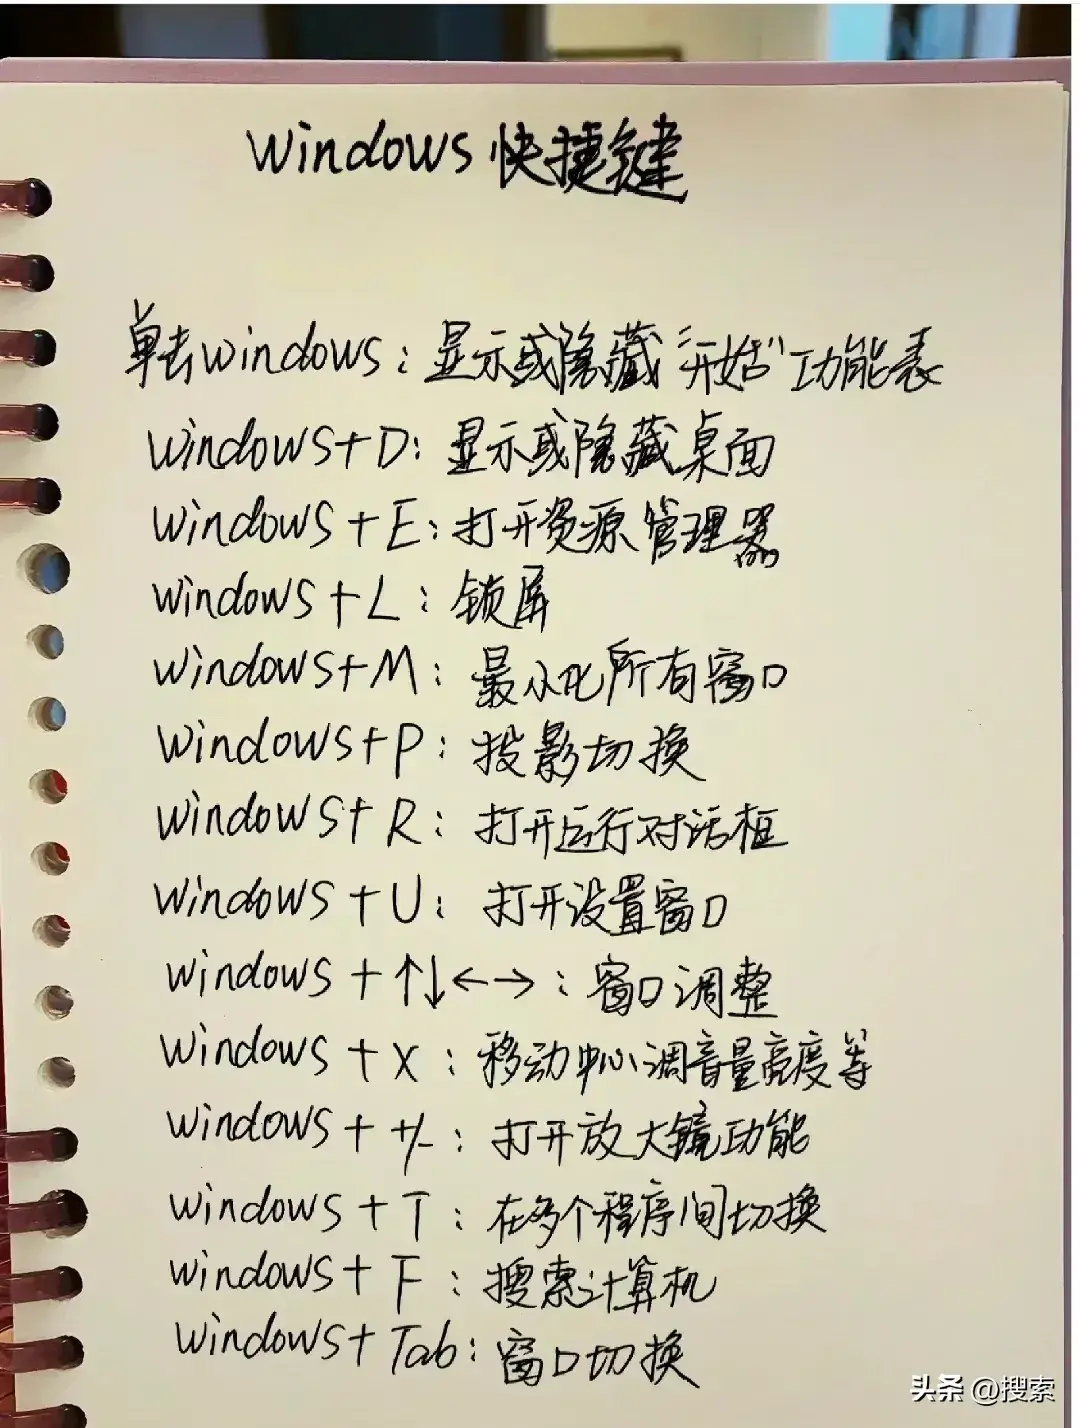 Windows 快捷键
单击windows：显示或隐藏"开始"功能表
Windows+D：显示或隐藏桌面
Windows+E：打开资源管理器
Windows+L：锁屏
Windows+M：最小化所有窗口
Windows+P：投影切换
Windows+R：打开运行对话框
Windows+U：打开设置窗口
Windows+↑↓←→：窗口调整
Windows+X：移动中心调音量亮度等
Windows++/-：打开放大镜功能
Windows+T：在多个程序间切换
Windows+F：搜索计算机
Windows+Tab：窗口切换
头条 @搜索